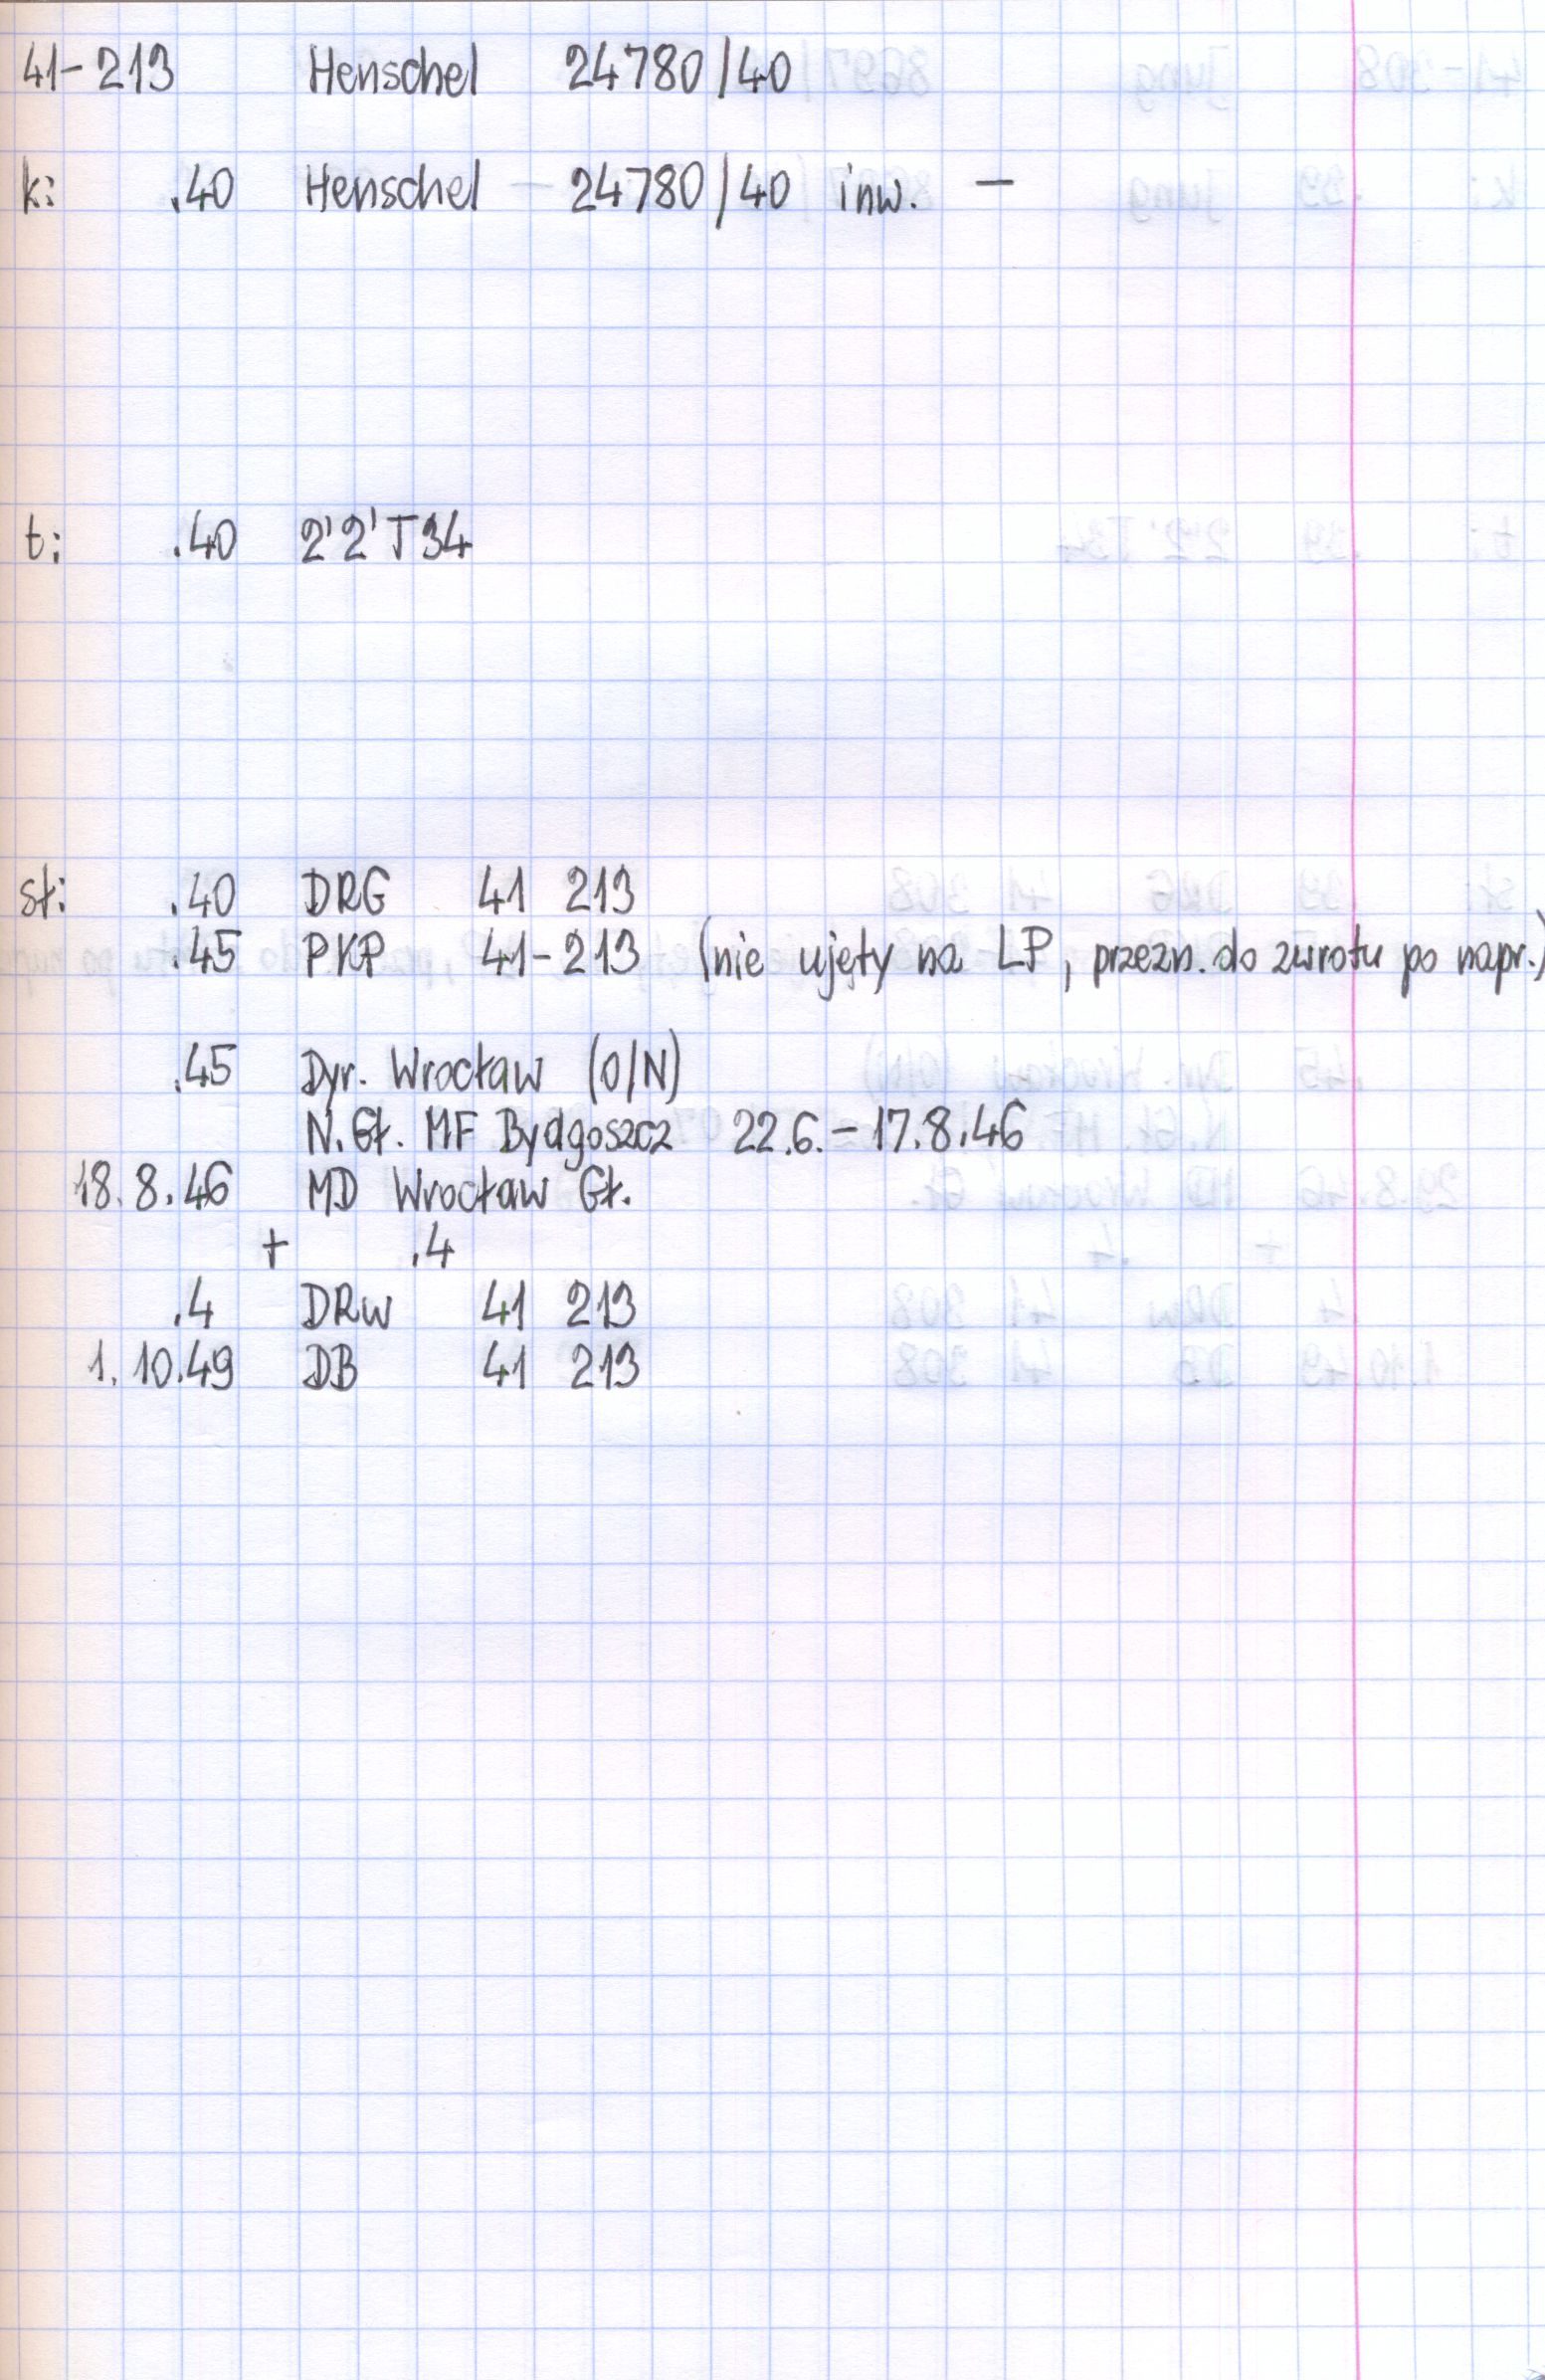 41-213 Henschel 24780/40
k: .40 Henschel 24780/40 inw. –
t: .40 2'2'T34
st: .40 DRG 41 213
.45 PKP 41-213 (nie ujęty na LP, przezn. do zwrotu po napr.)
.45 Dyr. Wrocław (O/N)
N.Gł. MF Bydgoszcz 22.6.–17.8.46
18.8.46 MD Wrocław Gł.
+ .4
.4 DRw 41 213
1.10.49 DB 41 213